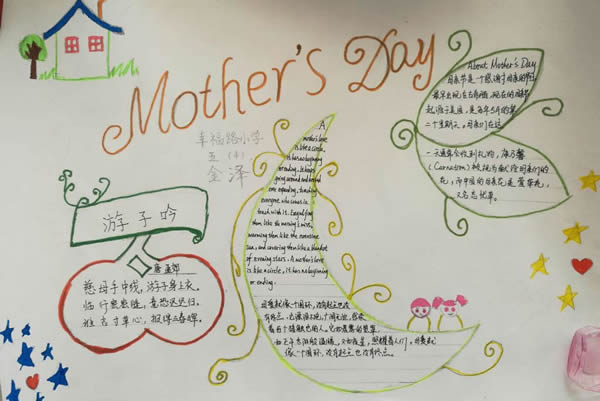 Mother's Day
幸福路小学
五（4）
金泽
游子吟
唐 孟郊
慈母手中线，游子身上衣。
临行密密缝，意恐迟迟归。
谁言寸草心，报得三春晖。
A
mother's love
is like a circle,
it has no beginning
or ending. It keeps
going around and around
ever expanding, touching
everyone who comes in
touch with it. Engulfing
them like the morning's mist,
warming them like the noontime
sun, and covering them like a blanket
of evening stars. A mother's love
is like a circle, it has no beginning
or ending.
母爱就像一个圆环，没有起点也没
有终点。
像一个圆环，没有起点也没有终点。
About Mother's Day
母亲节是一个感谢母亲的节日，
最早出现在古希腊，现在的母亲节
起源于美国，是每年5月的第
二个星期天。母亲们在这
一天通常会收到礼物，康乃馨
(Carnation)被视为献给母亲们的
花，而中国的母亲花是萱草花，
又名忘忧草。